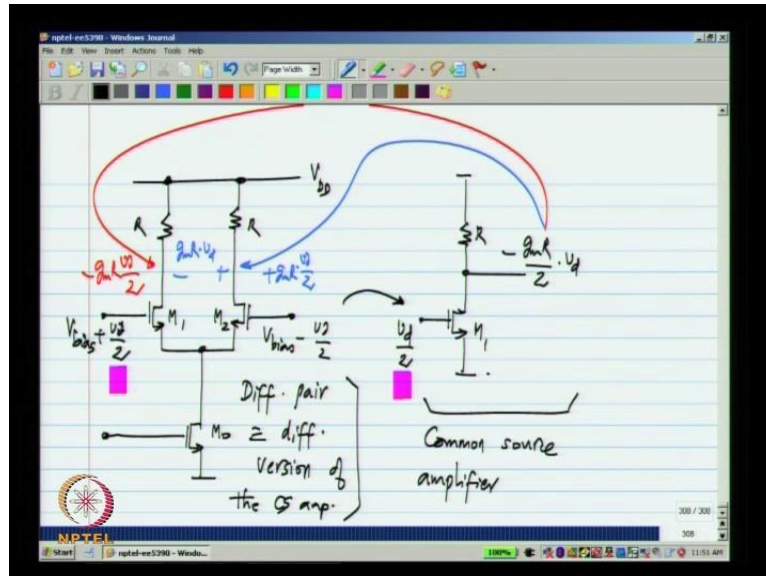 nptel-ee5390 - Windows Journal
File Edit View Insert Actions Tools Help
Page Width
V_DD
R
R
-g_mR v_d/2
g_mR·v_d
- +
+g_mR·v_d/2
M_1
M_2
V_bias + v_d/2
V_bias - v_d/2
M_0
Diff. pair
≡ diff.
version of
the CS amp.
R
-g_mR/2 · v_d
v_d/2
M_1
Common source
amplifier
308 / 308
308
NPTEL
Start
nptel-ee5390 - Windo...
100%
11:51 AM